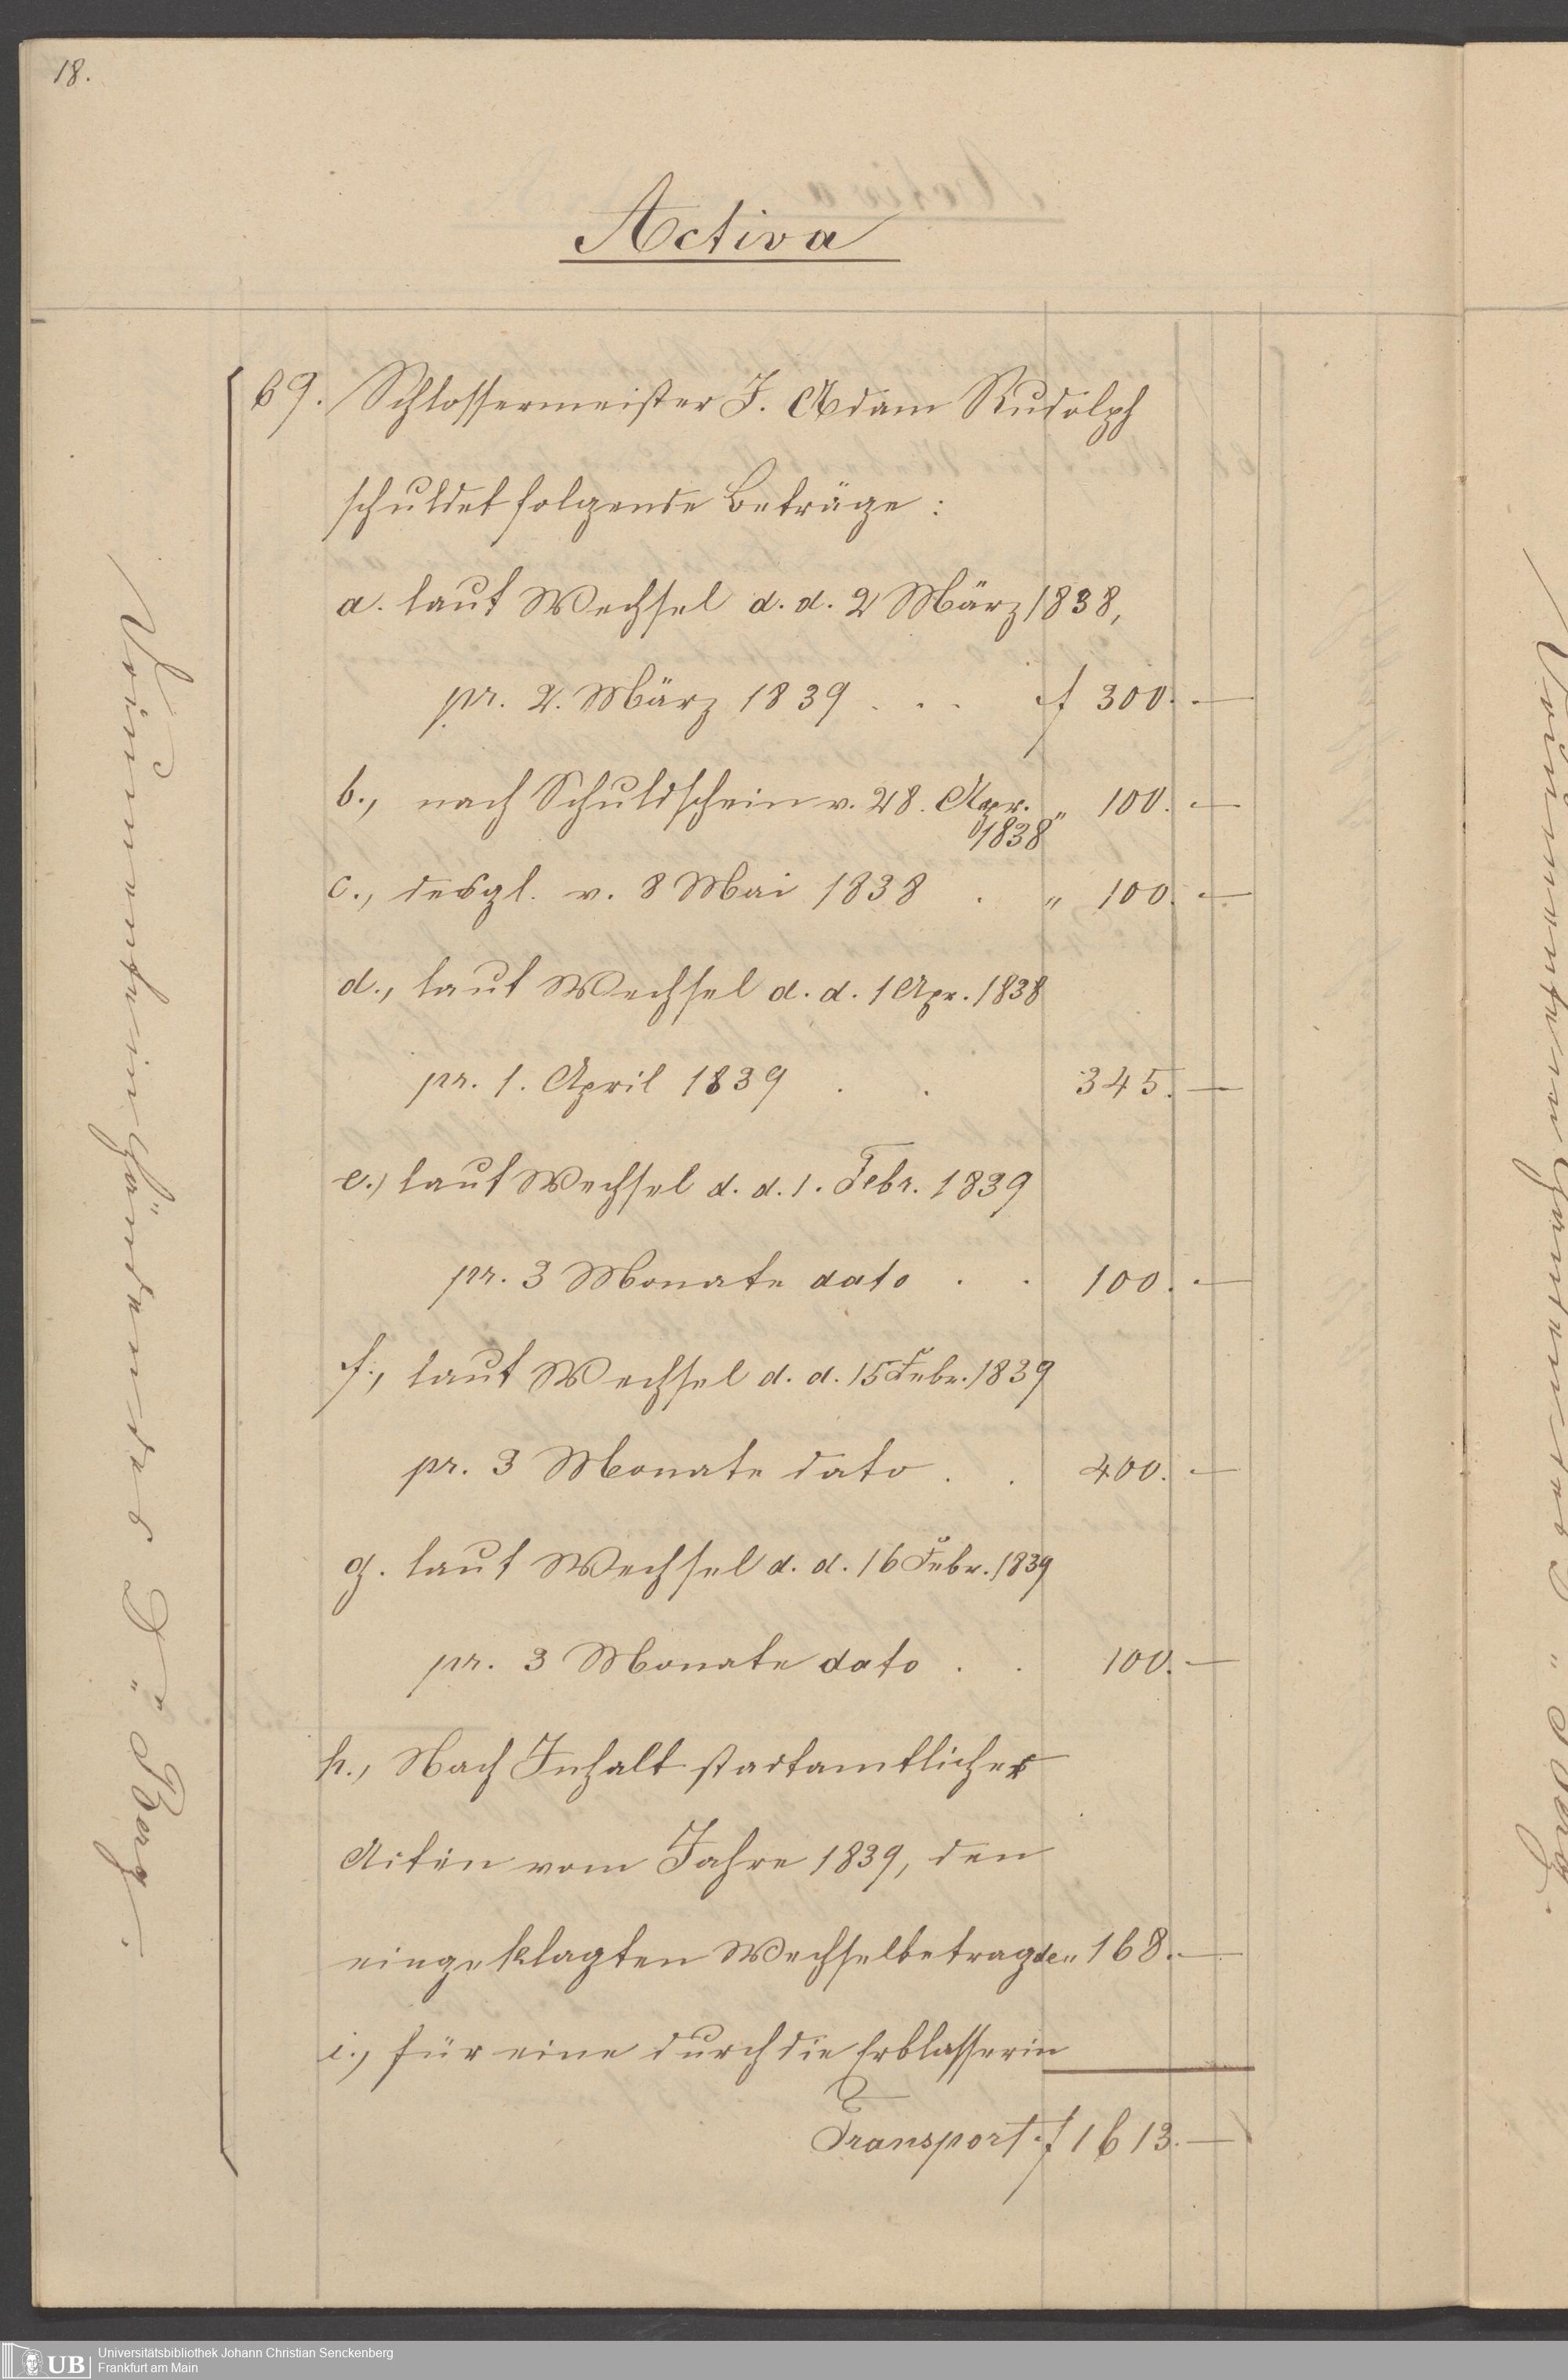 18.
Activa
69. Schlossermeister J. Adam Rudolph
schuldet folgende Beträge:
a. laut Wechsel d. d. 2 März 1838,
pr. 2. März 1839 . . . f 300. —
b., nach Schuldschein v. 28. Apr. 1838 " 100. —
c., desgl. v. 8 Mai 1838 . " 100. —
d., laut Wechsel d. d. 1 Apr. 1838
pr. 1. April 1839 . . 345. —
e.) laut Wechsel d. d. 1. Febr. 1839
pr. 3 Monate dato . . 100. —
f., laut Wechsel d. d. 15 Febr. 1839
pr. 3 Monate dato . . 400. —
g. laut Wechsel d. d. 16 Febr. 1839
pr. 3 Monate dato . . 100. —
h., Nach Inhalt stadtamtlicher
Acten vom Jahre 1839, den
eingeklagten Wechselbetrag de " 168. —
i., für eine durch die Erblasserin
Transport f 1613. —
Dr. Borg.
Universitätsbibliothek Johann Christian Senckenberg
Frankfurt am Main
UB